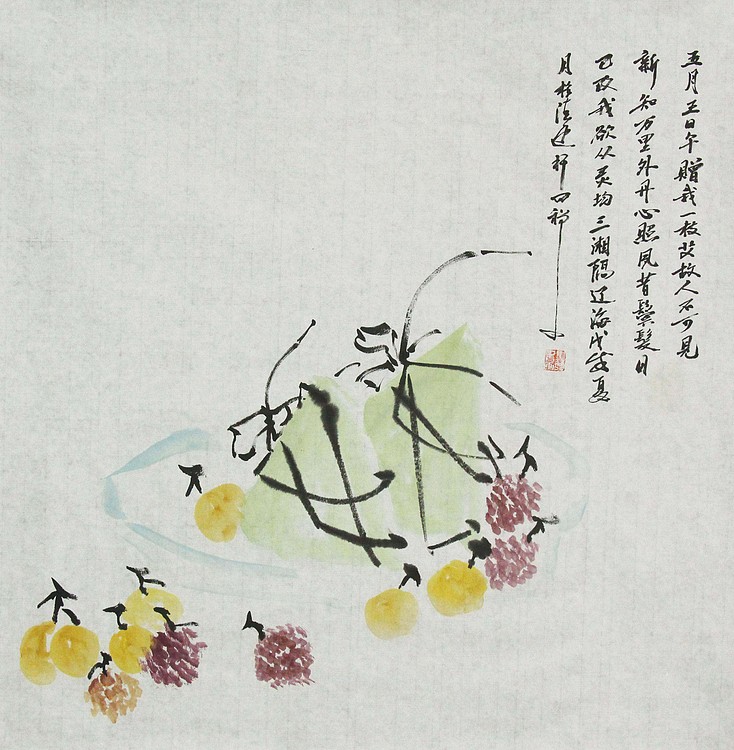 五月五日午贈我一枝艾故人不可見
新知万里外丹心照夙昔鬓髮日
已改我欲从灵均三湘隔辽海戊戌夏
月於